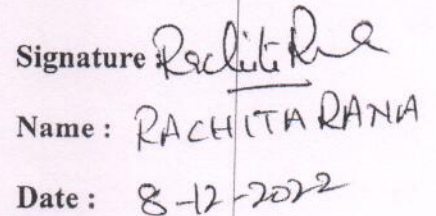 Signature : Rachita Rana
Name : RACHITA RANA
Date : 8-12-2022